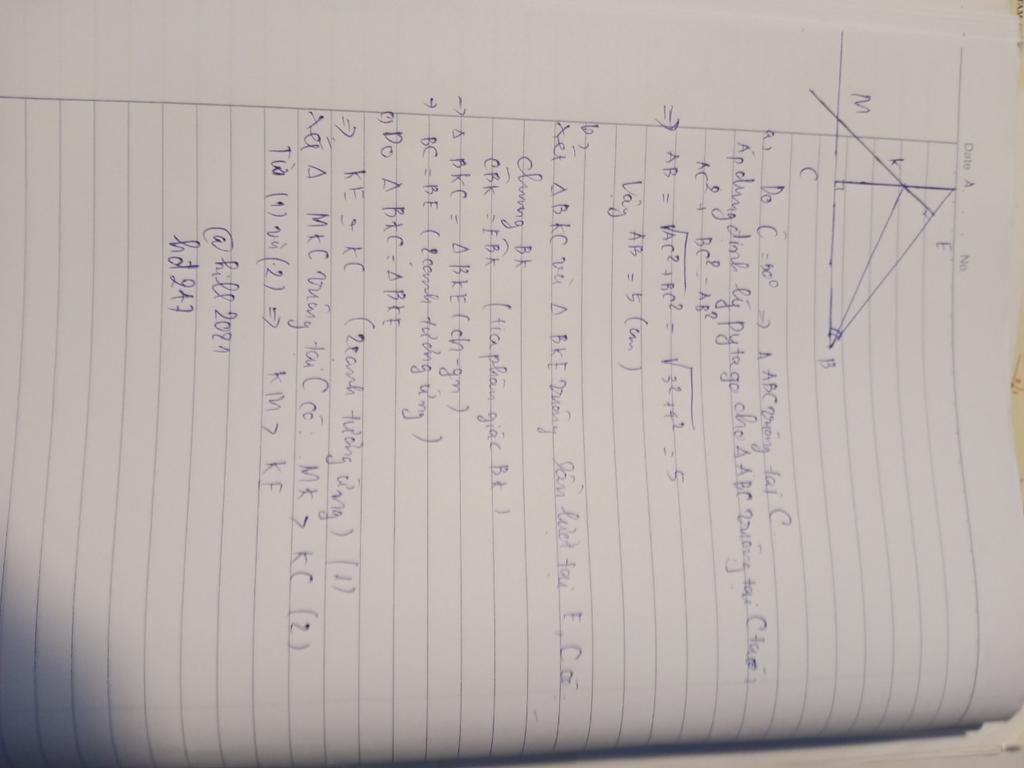 Date
No
A
E
K
M
C
B
a, Do Ĉ = 90° => Δ ABC vuông tại C
Áp dụng định lý Pytago cho Δ ABC vuông tại C ta có:
AC² + BC² = AB²
=> AB = √AC²+BC² = √3²+4² = 5
Vậy AB = 5 (cm)
b,
Xét Δ BKC và Δ BKE vuông lần lượt tại E, C có:
chung BK
CBK = EBK (tia phân giác BK)
-> Δ BKC = Δ BKE (ch-gn)
-> BC = BE (2 cạnh tương ứng)
c) Do Δ BKC = Δ BKE
=> KE = KC (2 cạnh tương ứng) (1)
Xét Δ MKC vuông tại C có: MK > KC (2)
Từ (1) và (2) => KM > KE
@hill2021
hd247